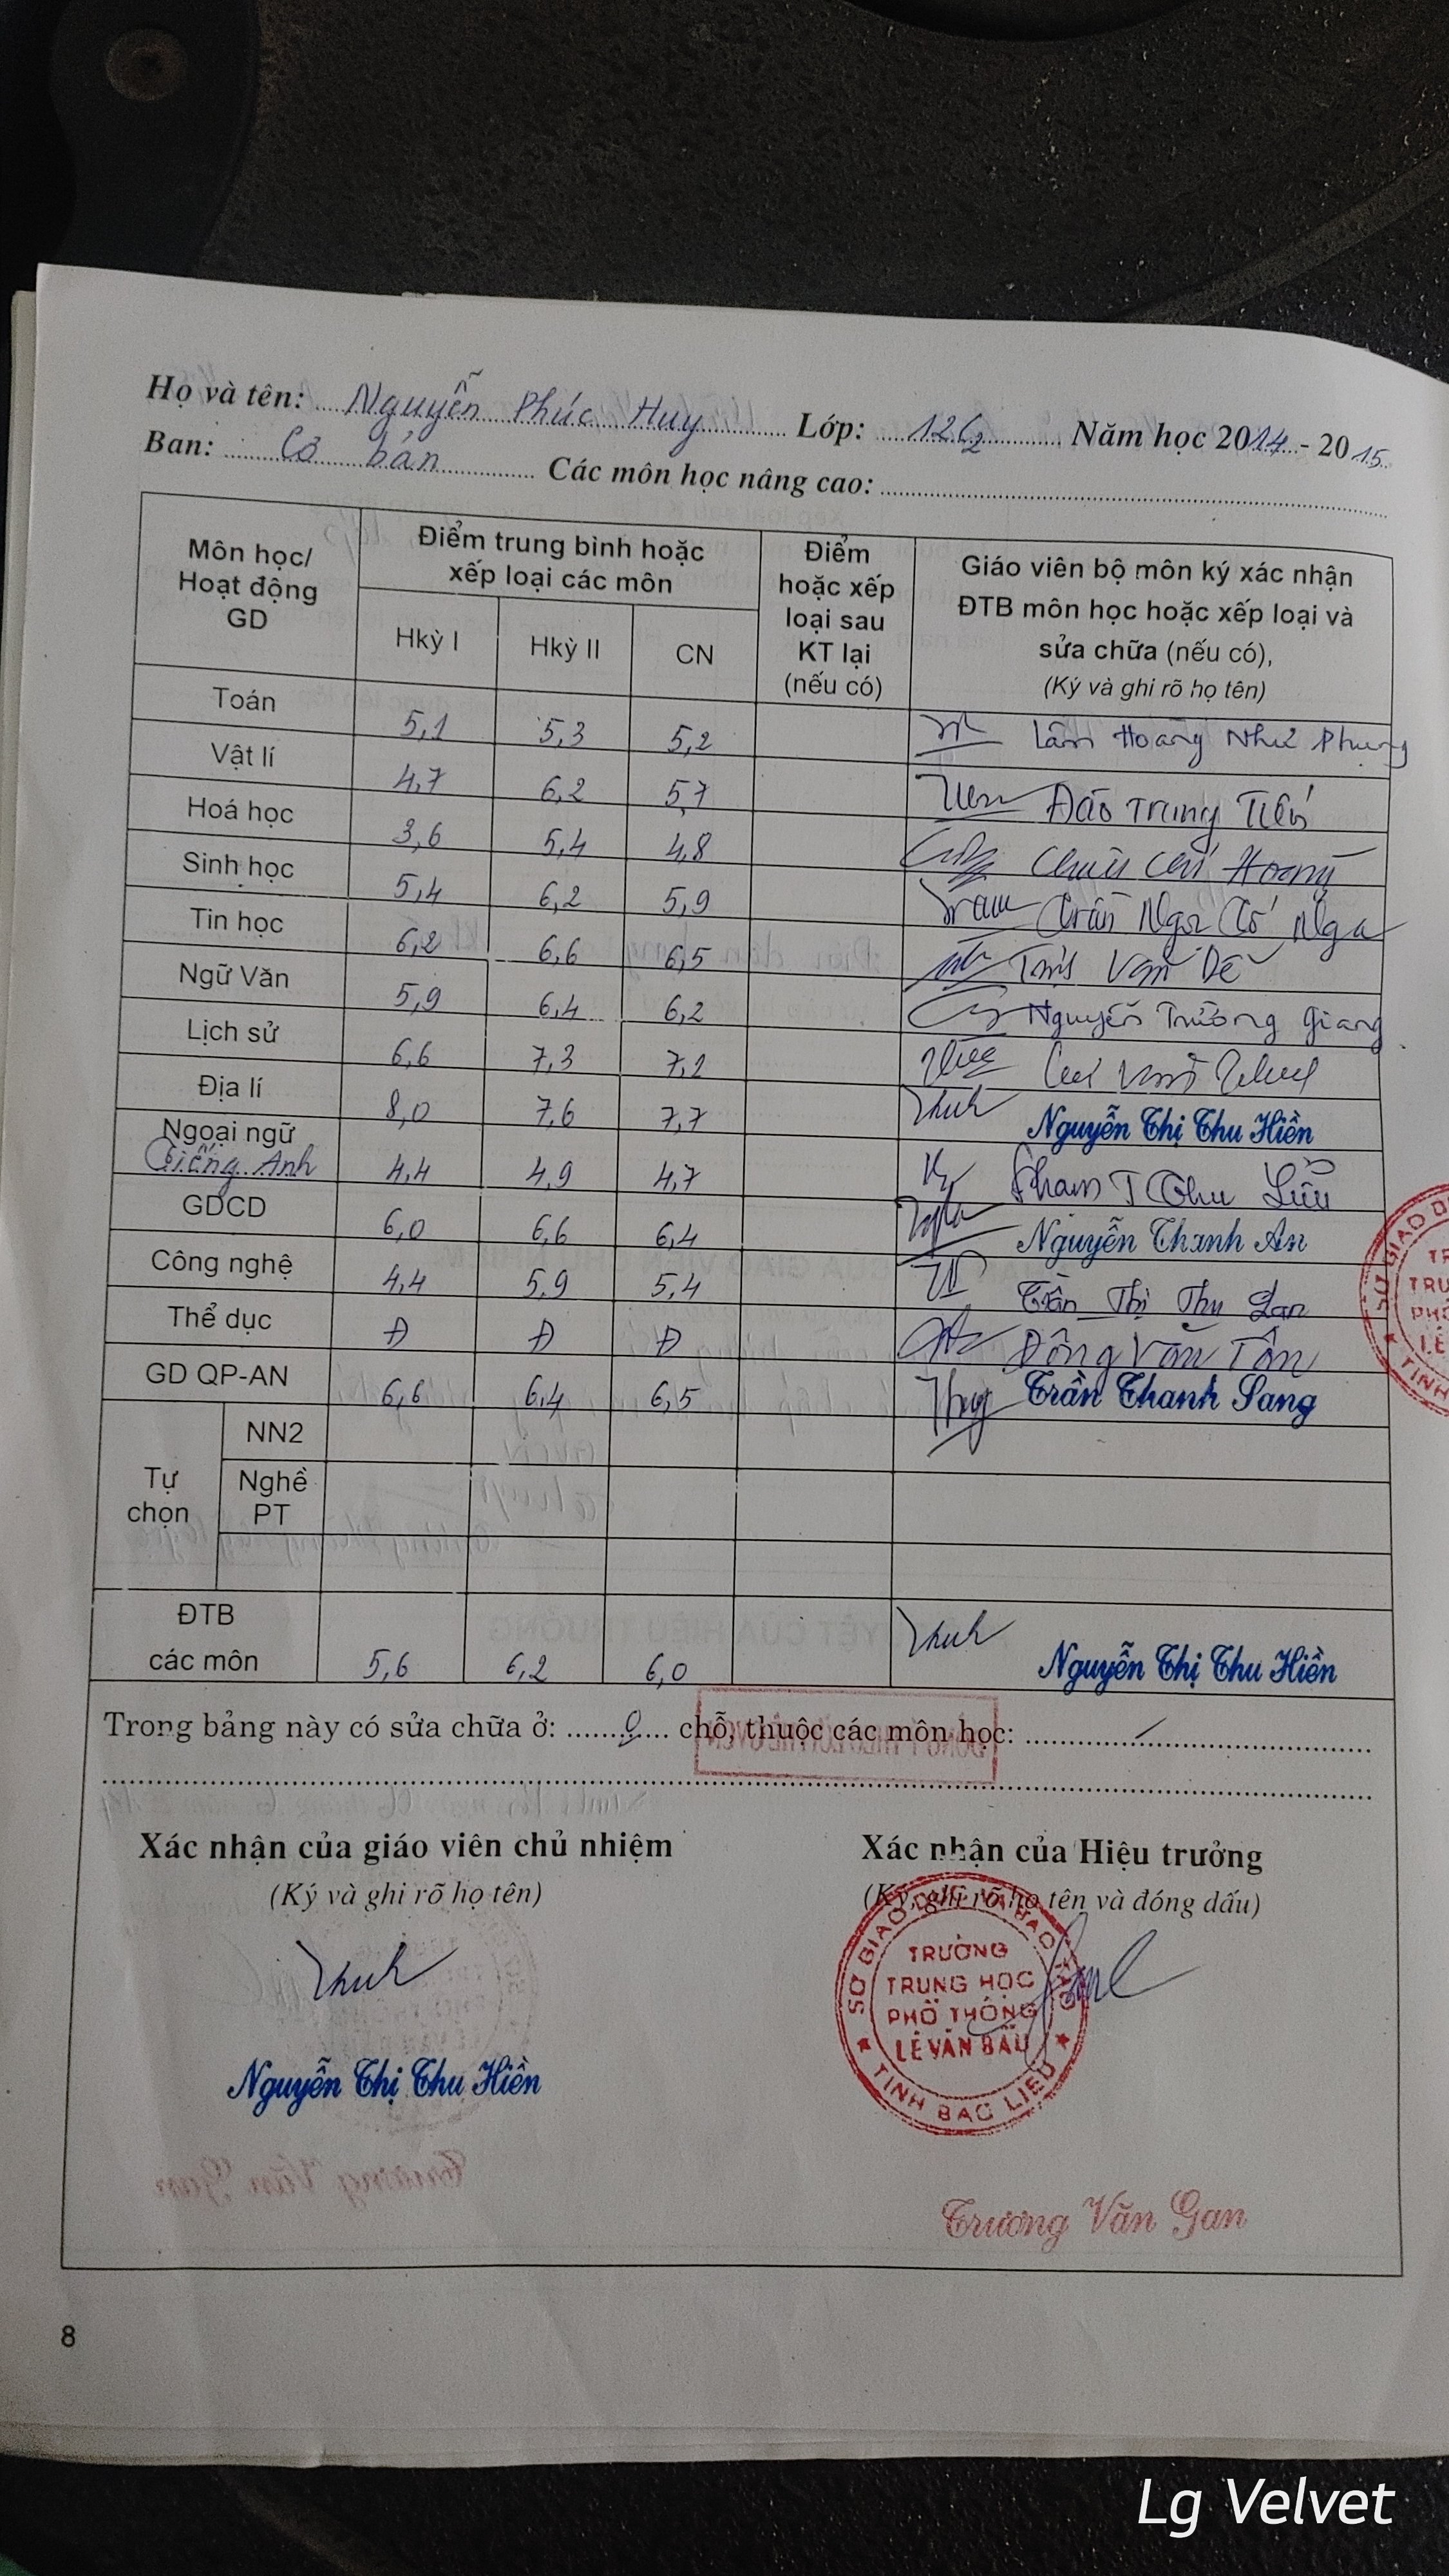 Họ và tên: Nguyễn Phúc Huy Lớp: 12C2 Năm học 2014 - 2015
Ban: Cơ bản Các môn học nâng cao:
Môn học/ Hoạt động GD
Điểm trung bình hoặc xếp loại các môn
Hkỳ I Hkỳ II CN
Điểm hoặc xếp loại sau KT lại (nếu có)
Giáo viên bộ môn ký xác nhận
ĐTB môn học hoặc xếp loại và
sửa chữa (nếu có),
(Ký và ghi rõ họ tên)
Toán 5,1 5,3 5,2 Lâm Hoàng Như Phụng
Vật lí 4,7 6,2 5,7 Đào Trung Tiến
Hoá học 3,6 5,4 4,8 Hoàng
Sinh học 5,4 6,2 5,9 Trần Ngọc Tố Nga
Tin học 6,2 6,6 6,5 Văn Dễ
Ngữ Văn 5,9 6,4 6,2 Nguyễn Trường Giang
Lịch sử 6,6 7,3 7,1
Địa lí 8,0 7,6 7,7 Nguyễn Thị Thu Hiền
Ngoại ngữ
Tiếng Anh 4,4 4,9 4,7 Phạm T Thu
GDCD 6,0 6,6 6,4 Nguyễn Thanh An
Công nghệ 4,4 5,9 5,4 Trần Thị Thu Lan
Thể dục Đ Đ Đ Văn Tôn
GD QP-AN 6,6 6,4 6,5 Trần Thanh Sang
Tự chọn
NN2
Nghề PT
ĐTB
các môn 5,6 6,2 6,0 Nguyễn Thị Thu Hiền
Trong bảng này có sửa chữa ở: 0 chỗ, thuộc các môn học: /
Xác nhận của giáo viên chủ nhiệm
(Ký và ghi rõ họ tên)
Nguyễn Thị Thu Hiền
Xác nhận của Hiệu trưởng
(Ký, ghi rõ họ tên và đóng dấu)
SỞ GIÁO DỤC VÀ ĐÀO TẠO
TRƯỜNG
TRUNG HỌC
PHỔ THÔNG
LÊ VĂN ĐẨU
TỈNH BẠC LIÊU
Trương Văn Gan
8
Lg Velvet